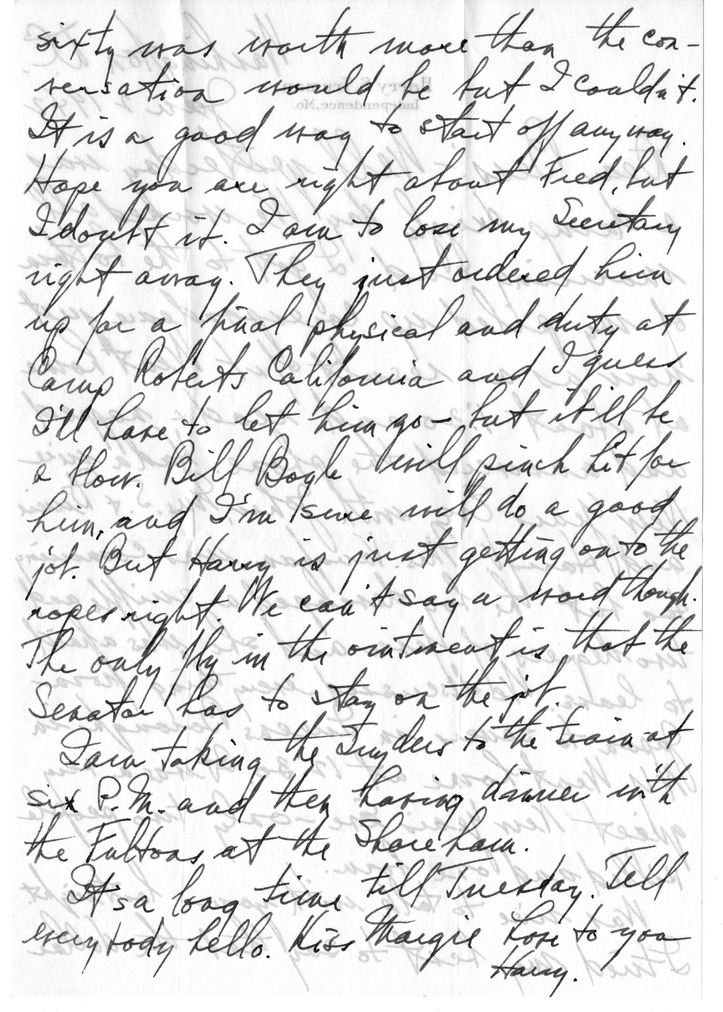 sixty was worth more than the con-
versation would be but I couldn't.
It is a good way to start off anyway.
Hope you are right about Fred, but
I doubt it. I am to lose my Secretary
right away. They just ordered him
up for a final physical and duty at
Camp Roberts California and I guess
I'll have to let him go - but it'll be
a blow. Bill Boyle will pinch hit for
him, and I'm sure will do a good
job. But Harry is just getting on to the
ropes right. We can't say a word though.
The only fly in the ointment is that the
Senator has to stay on the job.
I am taking the Snyders to the train at
six P.M. and then having dinner with
the Fultons at the Shoreham.
It's a long time till Tuesday. Tell
everybody hello. Kiss Margie Love to you
Harry.